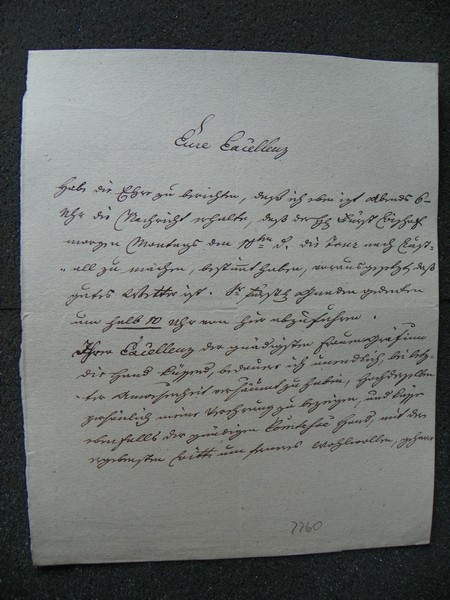 Eure Excellenz
Habe die Ehre zu berichten, daß ich eben izt Abends 6
Uhr die Nachricht erhalte, daß der H. Fürst Bischof
morgen Montags den 10ten d. die Tour nach
all zu machen, bestimmt haben, vorausgesetzt, daß
gutes Wetter ist. Gnaden gedenken
um halb 10 Uhr von hier abzufahren.
Ihrer Excellenz der gnädigsten Frau Gräfinn
die Hand küssend, bedaure ich unendlich, bei
ter Anwesenheit versäumt zu haben, Hochderselben
persönlich meine Verehrung zu bezeigen, und küsse
ebenfalls der gnädigen Comtesse Hand, mit der
ergebensten Bitte um ferneres Wohlwollen,
7760